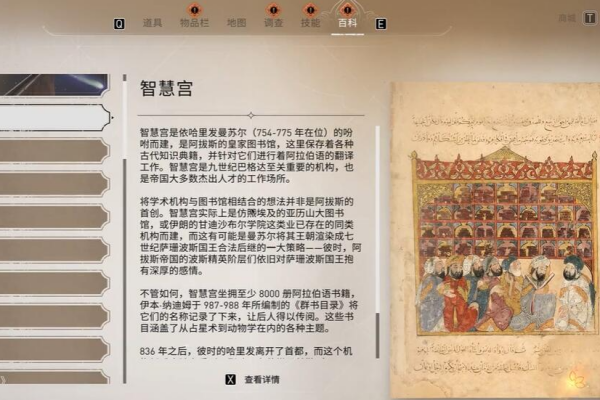 Q 道具 物品栏 地图 调查 技能 百科 E
商城 T
智慧宫
智慧宫是依哈里发曼苏尔（754-775 年在位）的吩
咐而建，是阿拔斯的皇家图书馆，这里保存着各种
古代知识典籍，并针对它们进行着阿拉伯语的翻译
工作。智慧宫是九世纪巴格达至关重要的机构，也
是帝国大多数杰出人才的工作场所。
将学术机构与图书馆相结合的想法并非是阿拔斯的
首创。智慧宫实际上是仿照埃及的亚历山大图书
馆，或伊朗的甘迪沙布尔学院这类业已存在的同类
机构而建，而这有可能是曼苏尔将其王朝渲染成七
世纪萨珊波斯国王合法后继的一大策略——彼时，阿
拔斯帝国的波斯精英阶层们依旧对萨珊波斯国王抱
有深厚的感情。
不管如何，智慧宫坐拥至少 8000 册阿拉伯语书籍，
伊本·纳迪姆于 987-988 年所编制的《群书目录》将
它们的名称记录了下来，让后人得以传阅。这些书
目涵盖了从占星术到动物学在内的各种主题。
836 年之后，彼时的哈里发离开了首都，而这个机
X 查看详情